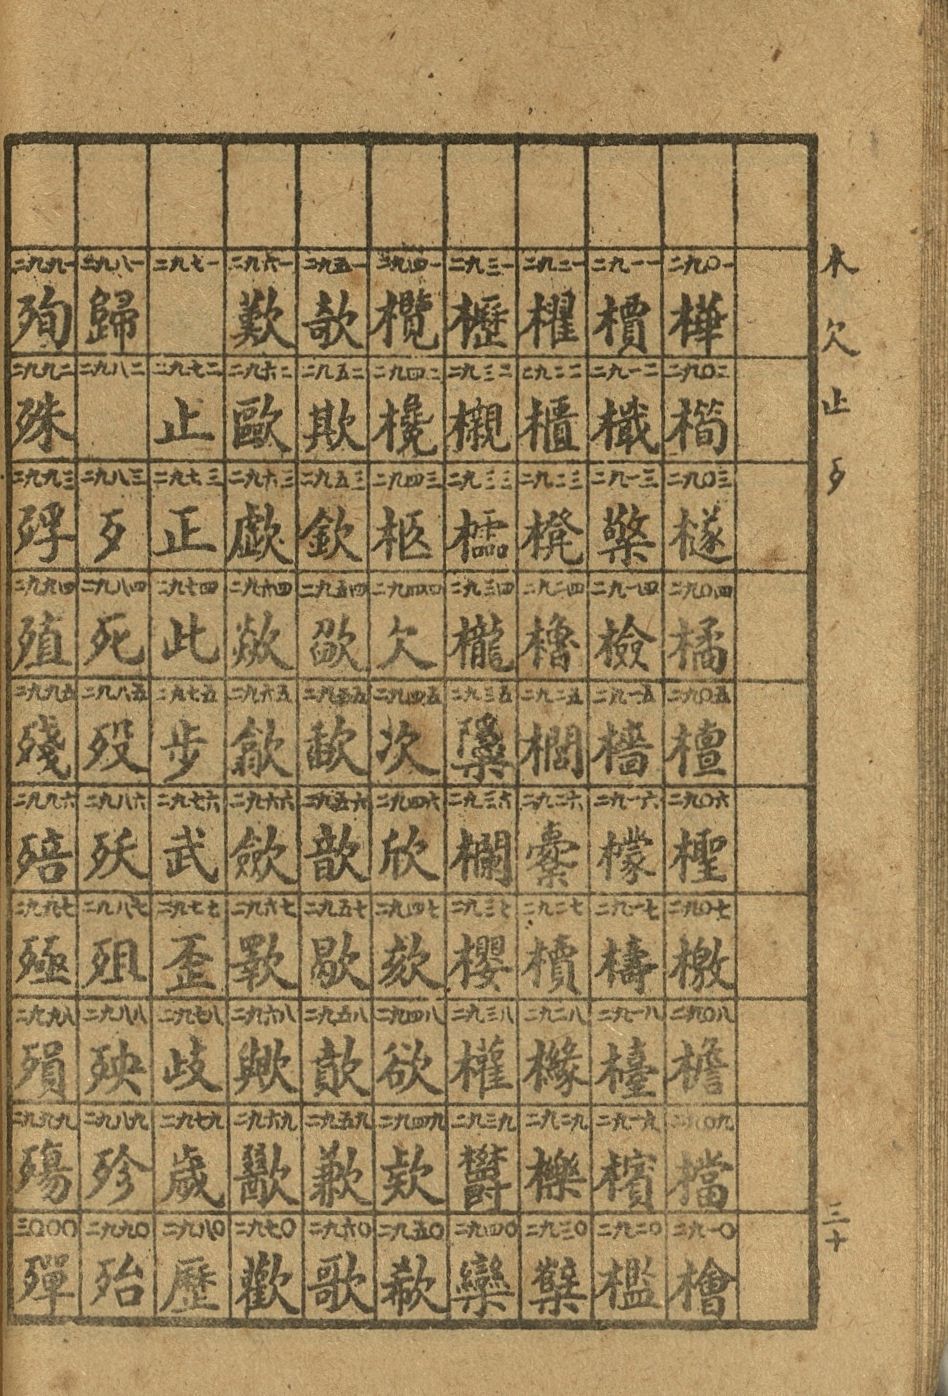 木欠止歹 三十
二九〇一 樺 二九〇二 二九〇三 檖 二九〇四 橘 二九〇五 檀 二九〇六 檉 二九〇七 檄 二九〇八 檐 二九〇九 檔 二九一〇 檜
二九一一 檟 二九一二 二九一三 檠 二九一四 檢 二九一五 檣 二九一六 檬 二九一七 檮 二九一八 檯 二九一九 檳 二九二〇 檻
二九二一 櫂 二九二二 櫃 二九二三 櫈 二九二四 櫓 二九二五 櫚 二九二六 櫜 二九二七 櫝 二九二八 櫞 二九二九 櫟 二九三〇 櫱
二九三一 櫪 二九三二 櫬 二九三三 櫺 二九三四 櫳 二九三五 櫽 二九三六 欄 二九三七 櫻 二九三八 權 二九三九 欝 二九四〇 欒
二九四一 欖 二九四二 欃 二九四三 二九四四 欠 二九四五 次 二九四六 欣 二九四七 欬 二九四八 欲 二九四九 欵 二九五〇 欷
二九五一 欹 二九五二 欺 二九五三 欽 二九五四 欿 二九五五 歃 二九五六 歆 二九五七 歇 二九五八 歊 二九五九 歉 二九六〇 歌
二九六一 歎 二九六二 歐 二九六三 歔 二九六四 歘 二九六五 歙 二九六六 歛 二九六七 歝 二九六八 歟 二九六九 歠 二九七〇 歡
二九七一 二九七二 止 二九七三 正 二九七四 此 二九七五 步 二九七六 武 二九七七 歪 二九七八 歧 二九七九 歲 二九八〇 歷
二九八一 歸 二九八二 二九八三 歹 二九八四 死 二九八五 歿 二九八六 殀 二九八七 殂 二九八八 殃 二九八九 殄 二九九〇 殆
二九九一 殉 二九九二 殊 二九九三 殍 二九九四 殖 二九九五 殘 二九九六 殕 二九九七 殛 二九九八 殞 二九九九 殤 三〇〇〇 殫